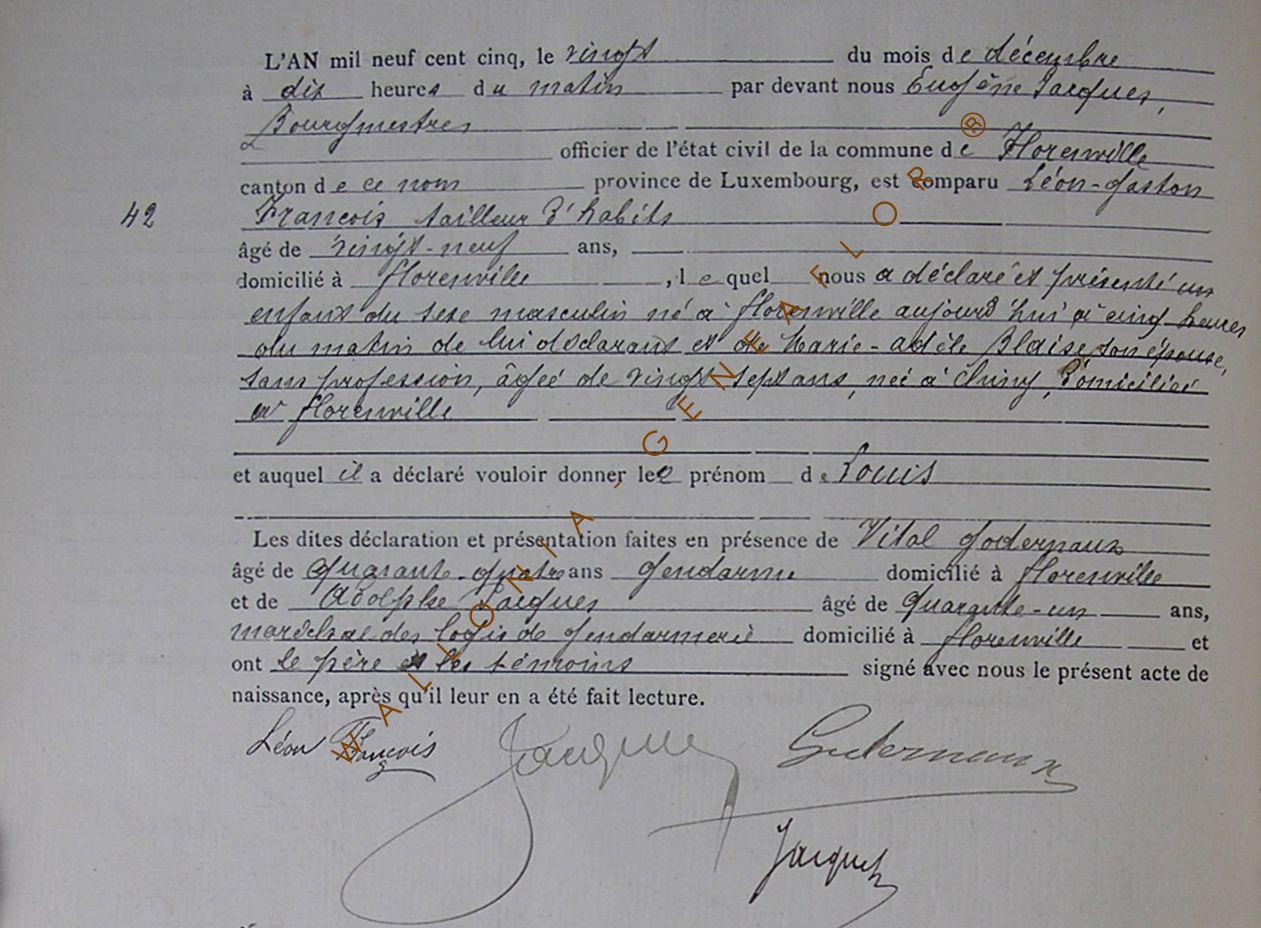 L'AN mil neuf cent cinq, le vingt du mois de décembre
à dix heures du matin par devant nous Eugène Jacques,
Bourgmestre
officier de l'état civil de la commune de Florenville
canton de ce nom province de Luxembourg, est comparu Léon-Gaston
42 François tailleur d'habits
âgé de vingt-neuf ans,
domicilié à florenville, lequel nous a déclaré et présenté un
enfant du sexe masculin né à florenville aujourd'hui à cinq heures
du matin de lui déclarant et de Marie-Adèle Blaise, son épouse,
sans profession, âgée de vingt sept ans, née à Chiny, domiciliée
à florenville
et auquel il a déclaré vouloir donner le prénom de Louis
Les dites déclaration et présentation faites en présence de Vital Godernaux
âgé de quarante-quatre ans Gendarme domicilié à florenville
et de Adolphe Jacques âgé de quarante-un ans,
maréchal des logis de gendarmerie domicilié à florenville et
ont le père et les témoins signé avec nous le présent acte de
naissance, après qu'il leur en a été fait lecture.
Léon François Jacques Godernaux
Jacques
WALLONIA - GENEAFLOR ®